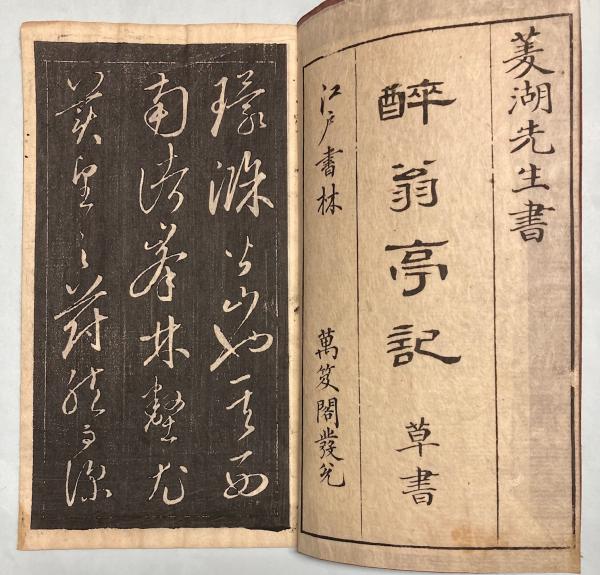 菱湖先生書
醉翁亭記 草書
江戶書林 萬笈閣發兌
環滁皆山也其西
南諸峯林壑尤
美望之蔚然而深